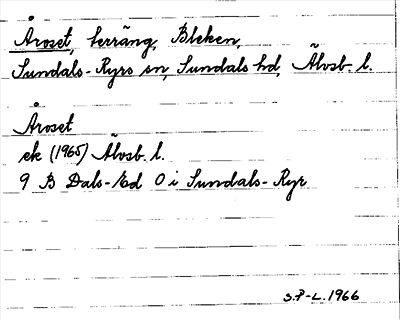 Åroset, terräng, Bleken,
Sundals-Ryrs sn, Sundals hd, Älvsb. l.
Åroset
ek (1965) Älvsb. l.
9 B Dals-Ed 0 i Sundals-Ryr
S.P-L. 1966